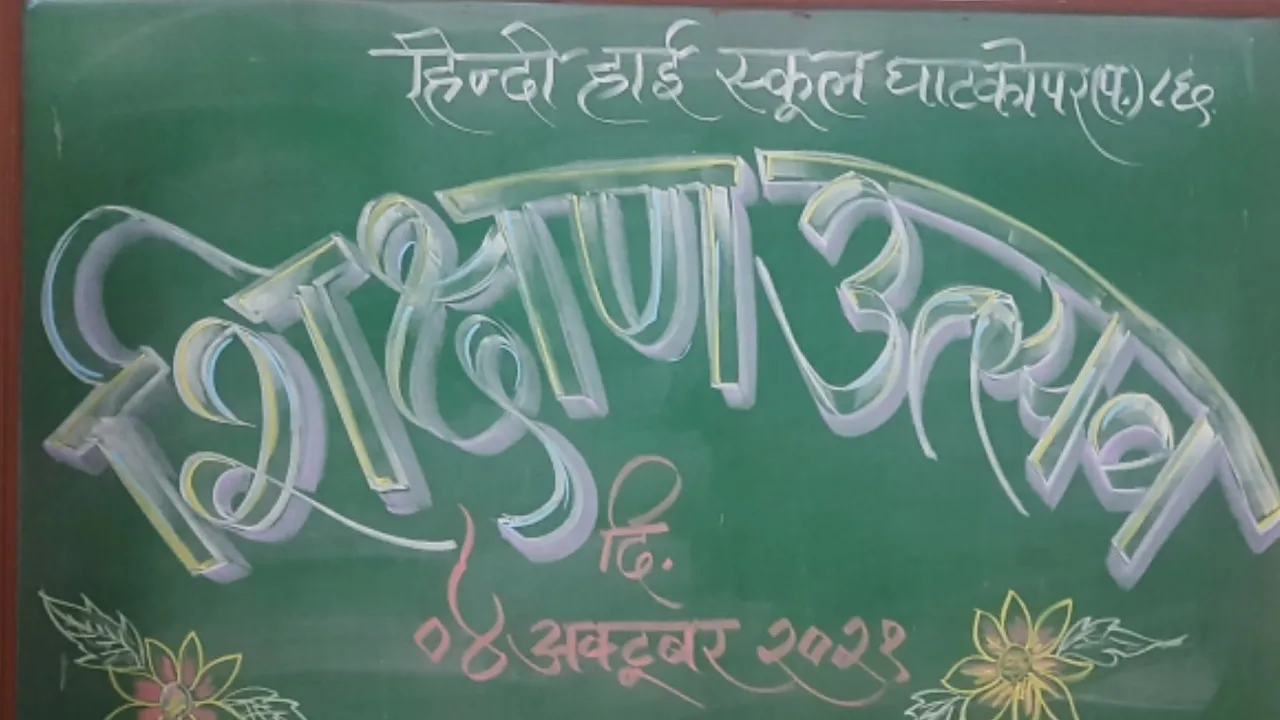 हिन्दी हाई स्कूल घाटकोपर(प.)८६
शिक्षण उत्सव
दि.
०४ अक्टूबर २०२१